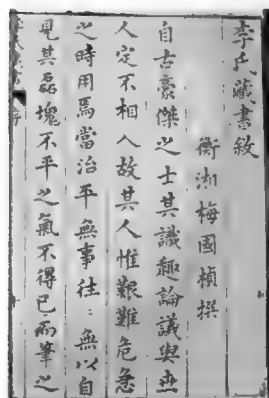 李氏藏書敘
衡湘梅國楨撰
自古豪傑之士其識趣論議與世
人定不相入故其人惟艱難危急
之時用焉當治平無事往:無以自
見其磊塊不平之氣不得已而筆之